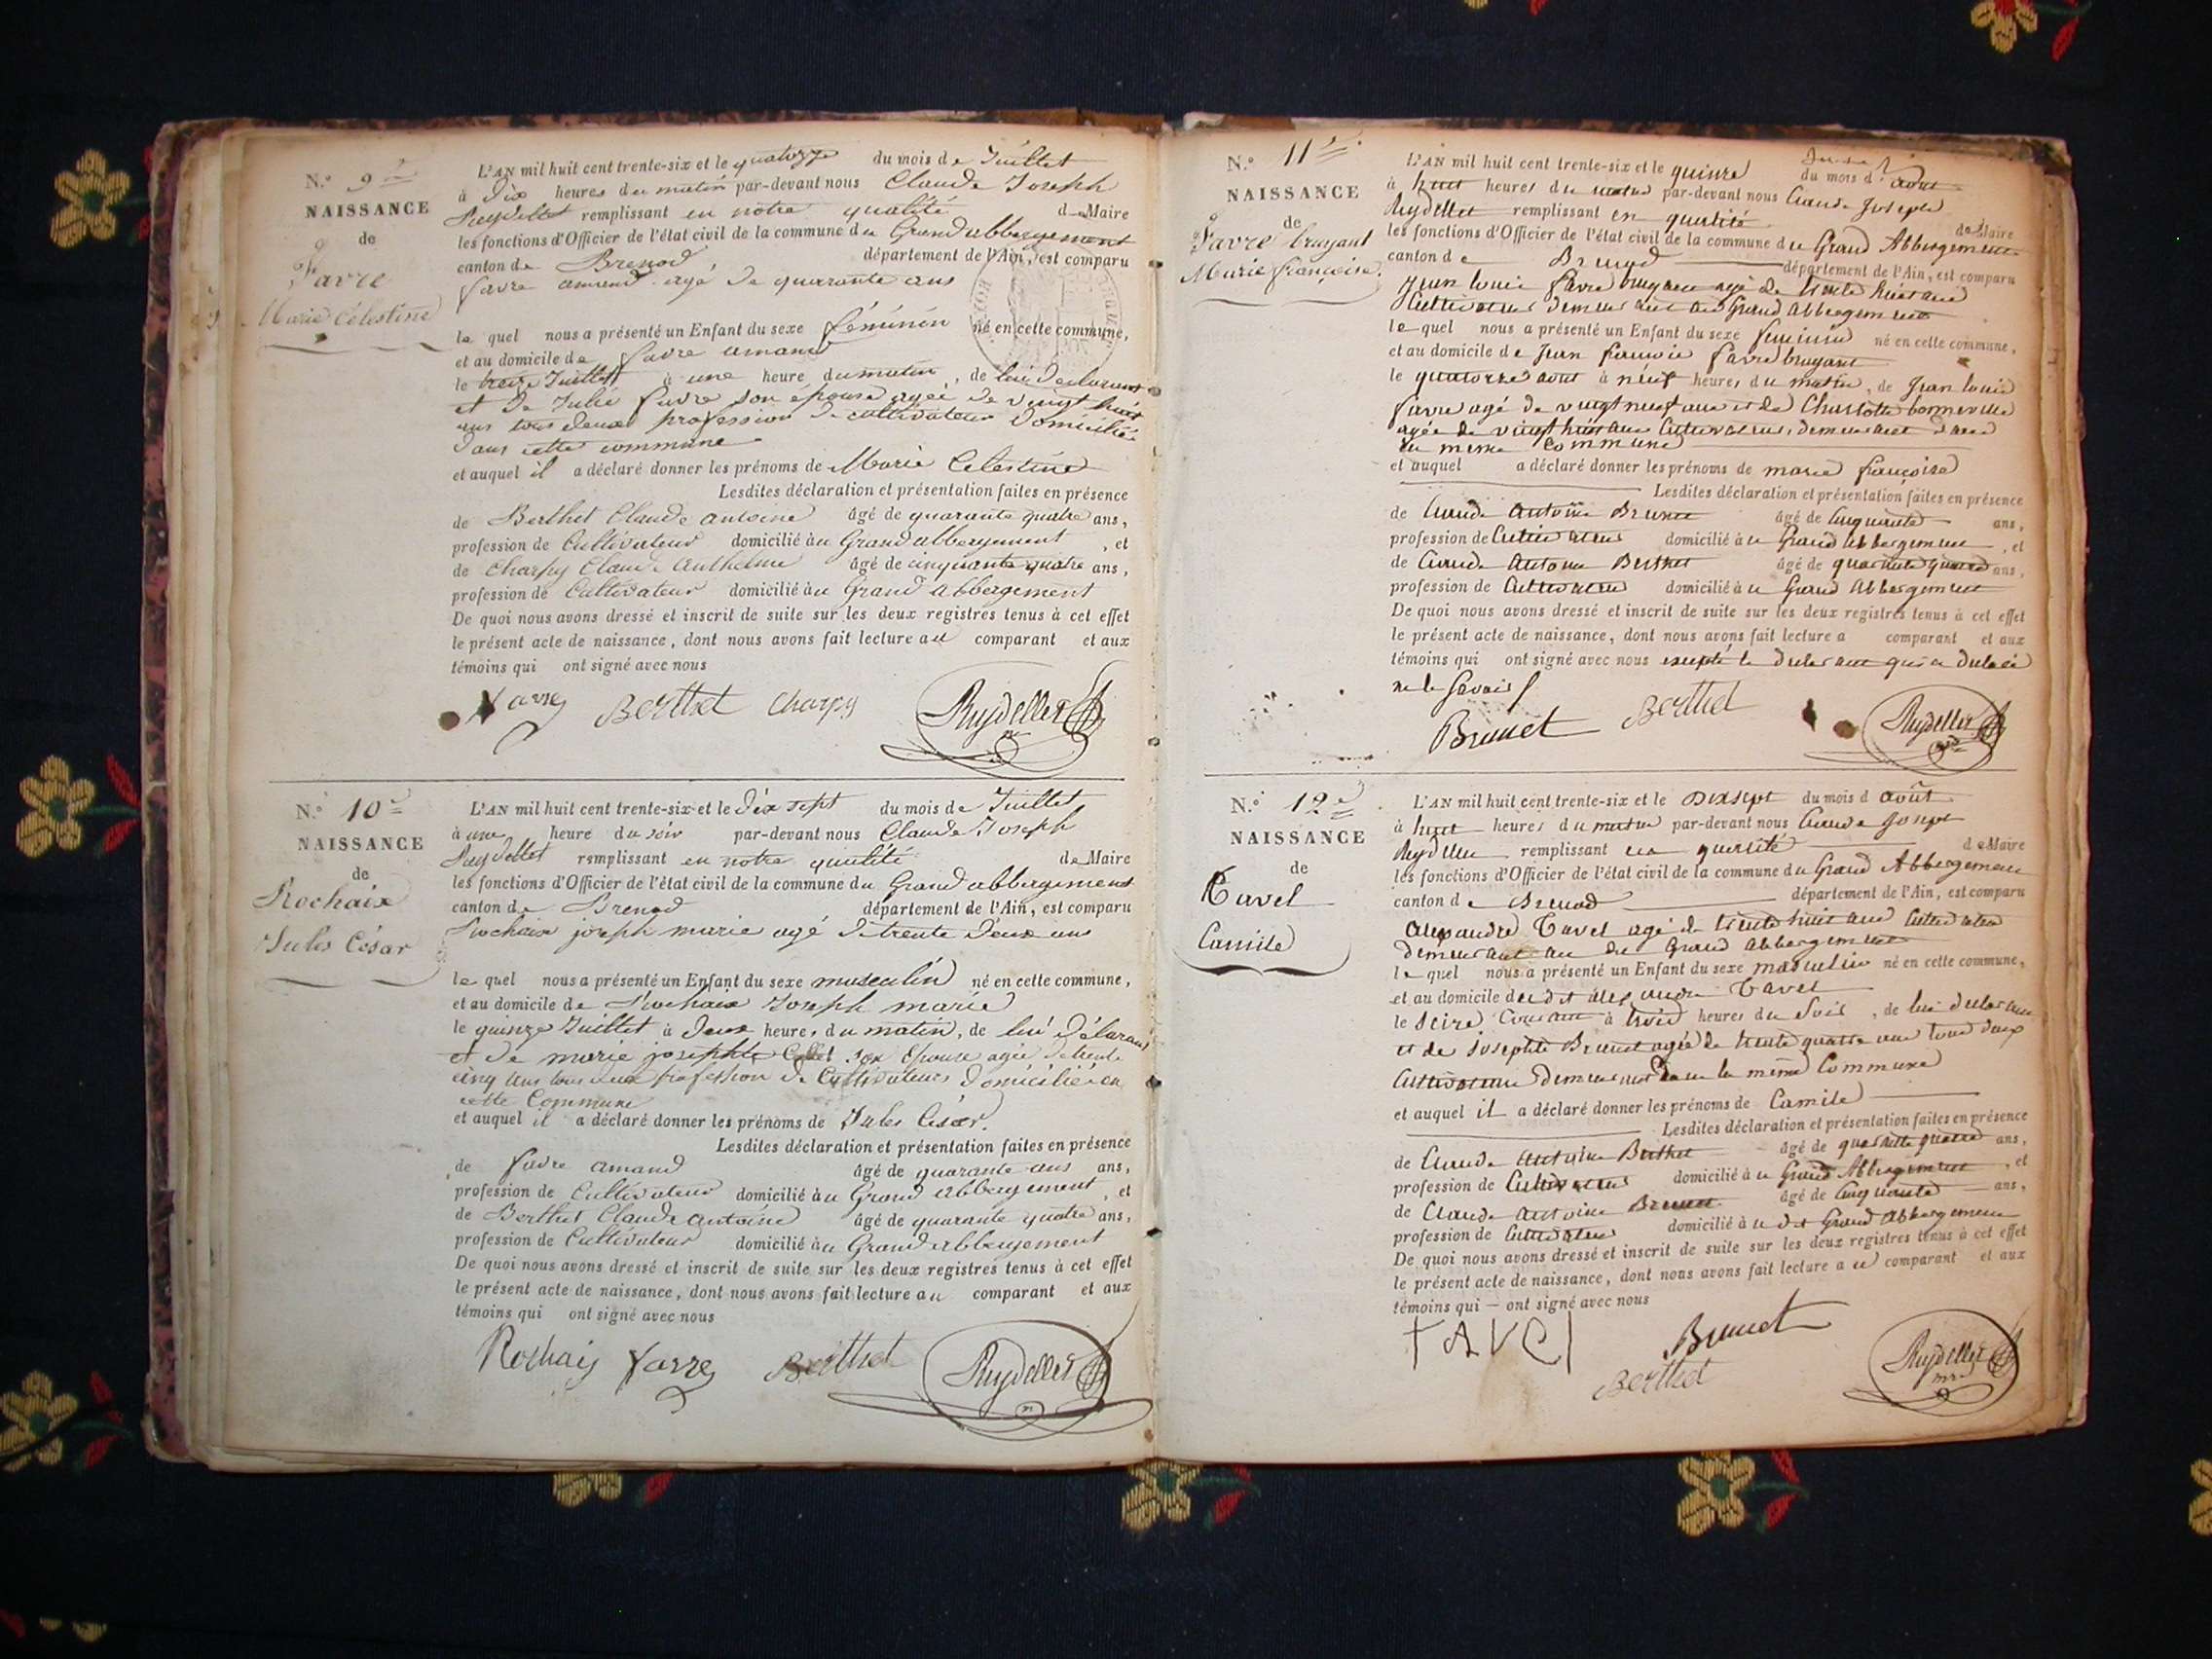 N.° 9
NAISSANCE
de
Favre
Marie Célestine
L'AN mil huit cent trente-six et le quatorze du mois de Juillet
à Dix heures du matin par-devant nous Claude Joseph
Reydellet remplissant en notre qualité de Maire
les fonctions d'Officier de l'état civil de la commune du Grand abbergement
canton de Brenod département de l'Ain, est comparu
favre amand agé de quarante ans
le quel nous a présenté un Enfant du sexe féminin né en cette commune,
et au domicile de favre amand
le treize Juillet à une heure du matin, de lui Declarant
et de Julie favre son épouse agée de vingt huit
ans tous deux profession de cultivateurs Domiciliés
Dans cette commune
et auquel il a déclaré donner les prénoms de Marie Celestine
Lesdites déclaration et présentation faites en présence
de Berthet Claude antoine âgé de quarante quatre ans,
profession de Cultivateur domicilié au Grand abbergement, et
de Charpy Claude Anthelme âgé de cinquante quatre ans,
profession de Cultivateur domicilié au Grand abbergement
De quoi nous avons dressé et inscrit de suite sur les deux registres tenus à cet effet
le présent acte de naissance, dont nous avons fait lecture au comparant et aux
témoins qui ont signé avec nous
Favre Berthet Charpy Reydellet
N.° 10
NAISSANCE
de
Rochaix
Jules César
L'AN mil huit cent trente-six et le Dix sept du mois de Juillet
à une heure du soir par-devant nous Claude Joseph
Reydellet remplissant en notre qualité de Maire
les fonctions d'Officier de l'état civil de la commune du Grand abbergement
canton de Brenod département de l'Ain, est comparu
Rochaix joseph marie agé de trente deux ans
le quel nous a présenté un Enfant du sexe masculin né en cette commune,
et au domicile de Rochaix Joseph marie
le quinze Juillet à deux heures du matin, de lui Déclarant
et de marie josephte Collet son Epouse agée de trente
cinq ans tous deux profession de Cultivateurs domiciliés en
cette Commune
et auquel il a déclaré donner les prénoms de Jules César.
Lesdites déclaration et présentation faites en présence
de favre amand âgé de quarante ans ans,
profession de Cultivateur domicilié au Grand abbergement, et
de Berthet Claude antoine âgé de quarante quatre ans,
profession de Cultivateur domicilié au Grand abbergement
De quoi nous avons dressé et inscrit de suite sur les deux registres tenus à cet effet
le présent acte de naissance, dont nous avons fait lecture au comparant et aux
témoins qui ont signé avec nous
Rochaix Favre Berthet Reydellet
N.° 11
NAISSANCE
de
Favre bruyant
Marie françoise.
L'AN mil huit cent trente-six et le quinze du mois d'août
à huit heures du matin par-devant nous Claude Joseph
Reydellet remplissant en qualité de Maire
les fonctions d'Officier de l'état civil de la commune du Grand Abbergement
canton de Brenod département de l'Ain, est comparu
Jean Louis favre bruyant agé de trente huit ans
Cultivateur demeurant au Grand Abbergement
le quel nous a présenté un Enfant du sexe feminin né en cette commune,
et au domicile de Jean francois favre bruyant
le quatorze aout à neuf heures du matin, de Jean Louis
favre agé de vingt neuf ans et de Charlotte bonneville
agée de vingt huit ans Cultivateurs, demeurant dans
la meme Commune
et auquel a déclaré donner les prénoms de marie françoise
Lesdites déclaration et présentation faites en présence
de Claude Antoine Brunet âgé de Cinquante ans,
profession de Cultivateur domicilié au Grand Abbergement, et
de Claude Antoine Berthet âgé de quarante quatre ans,
profession de Cultivateur domicilié au Grand Abbergement
De quoi nous avons dressé et inscrit de suite sur les deux registres tenus à cet effet
le présent acte de naissance, dont nous avons fait lecture a comparant et aux
témoins qui ont signé avec nous excepté le declarant qui a declaré
ne le savoir
Brunet Berthet Reydellet
N.° 12
NAISSANCE
de
Tavel
Camile
L'AN mil huit cent trente-six et le Dixsept du mois d août
à huit heures du matin par-devant nous Claude Joseph
Reydellet remplissant en qualité de Maire
les fonctions d'Officier de l'état civil de la commune du Grand Abbergement
canton de Brenod département de l'Ain, est comparu
Alexandre Tavel agé de trente huit ans Cultivateur
demeurant au dit Grand Abbergement
le quel nous a présenté un Enfant du sexe masculin né en cette commune,
et au domicile dudit alexandre Tavel
le seize Courant à trois heures du Soir, de lui declarant
et de Josephte Brunet agée de trente quatre ans tous deux
Cultivateurs demeurant dans la même Commune
et auquel il a déclaré donner les prénoms de Camile
Lesdites déclaration et présentation faites en présence
de Claude Antoine Berthet âgé de quarante quatre ans,
profession de Cultivateur domicilié au Grand Abbergement, et
de Claude Antoine Brunet âgé de Cinquante ans,
profession de Cultivateur domicilié au dit Grand Abbergement
De quoi nous avons dressé et inscrit de suite sur les deux registres tenus à cet effet
le présent acte de naissance, dont nous avons fait lecture au comparant et aux
témoins qui ont signé avec nous
TAVEL Brunet
Berthet Reydellet